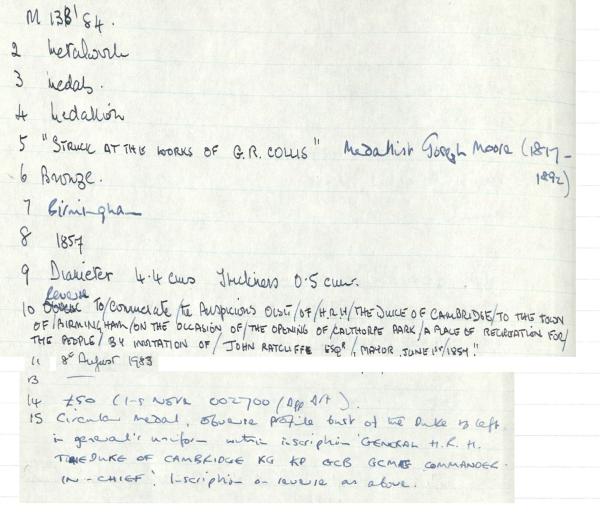 M 13B'84.
2 Metalwork
3 Medals.
4 Medallion
5 "STRUCK AT THE WORKS OF G.R. COLLIS" Medallist Joseph Moore (1817-
1892)
6 Bronze.
7 Birmingham
8 1857
9 Diameter 4.4 cms Thickness 0.5 cm.
Reverse
10 Obverse TO/COMMERATE/THE AUSPICIOUS VISIT/OF/H.R.H/THE DUKE OF CAMBRIDGE/TO THE TOWN
OF/BIRMINGHAM/ON THE OCCASION OF/THE OPENING OF/CALTHORPE PARK/A PLACE OF RECREATION FOR/
THE PEOPLE/BY INVITATION OF/JOHN RATCLIFFE ESQR, MAYOR JUNE 1ST/1857."
11 8th August 1983
13
14 £50
15 Circular medal, obverse profile bust of the Duke to left
in general's uniform within inscription 'GENERAL H.R.H.
THE DUKE OF CAMBRIDGE KG KP GCB GCMG COMMANDER
IN-CHIEF'. Inscription on reverse as above.